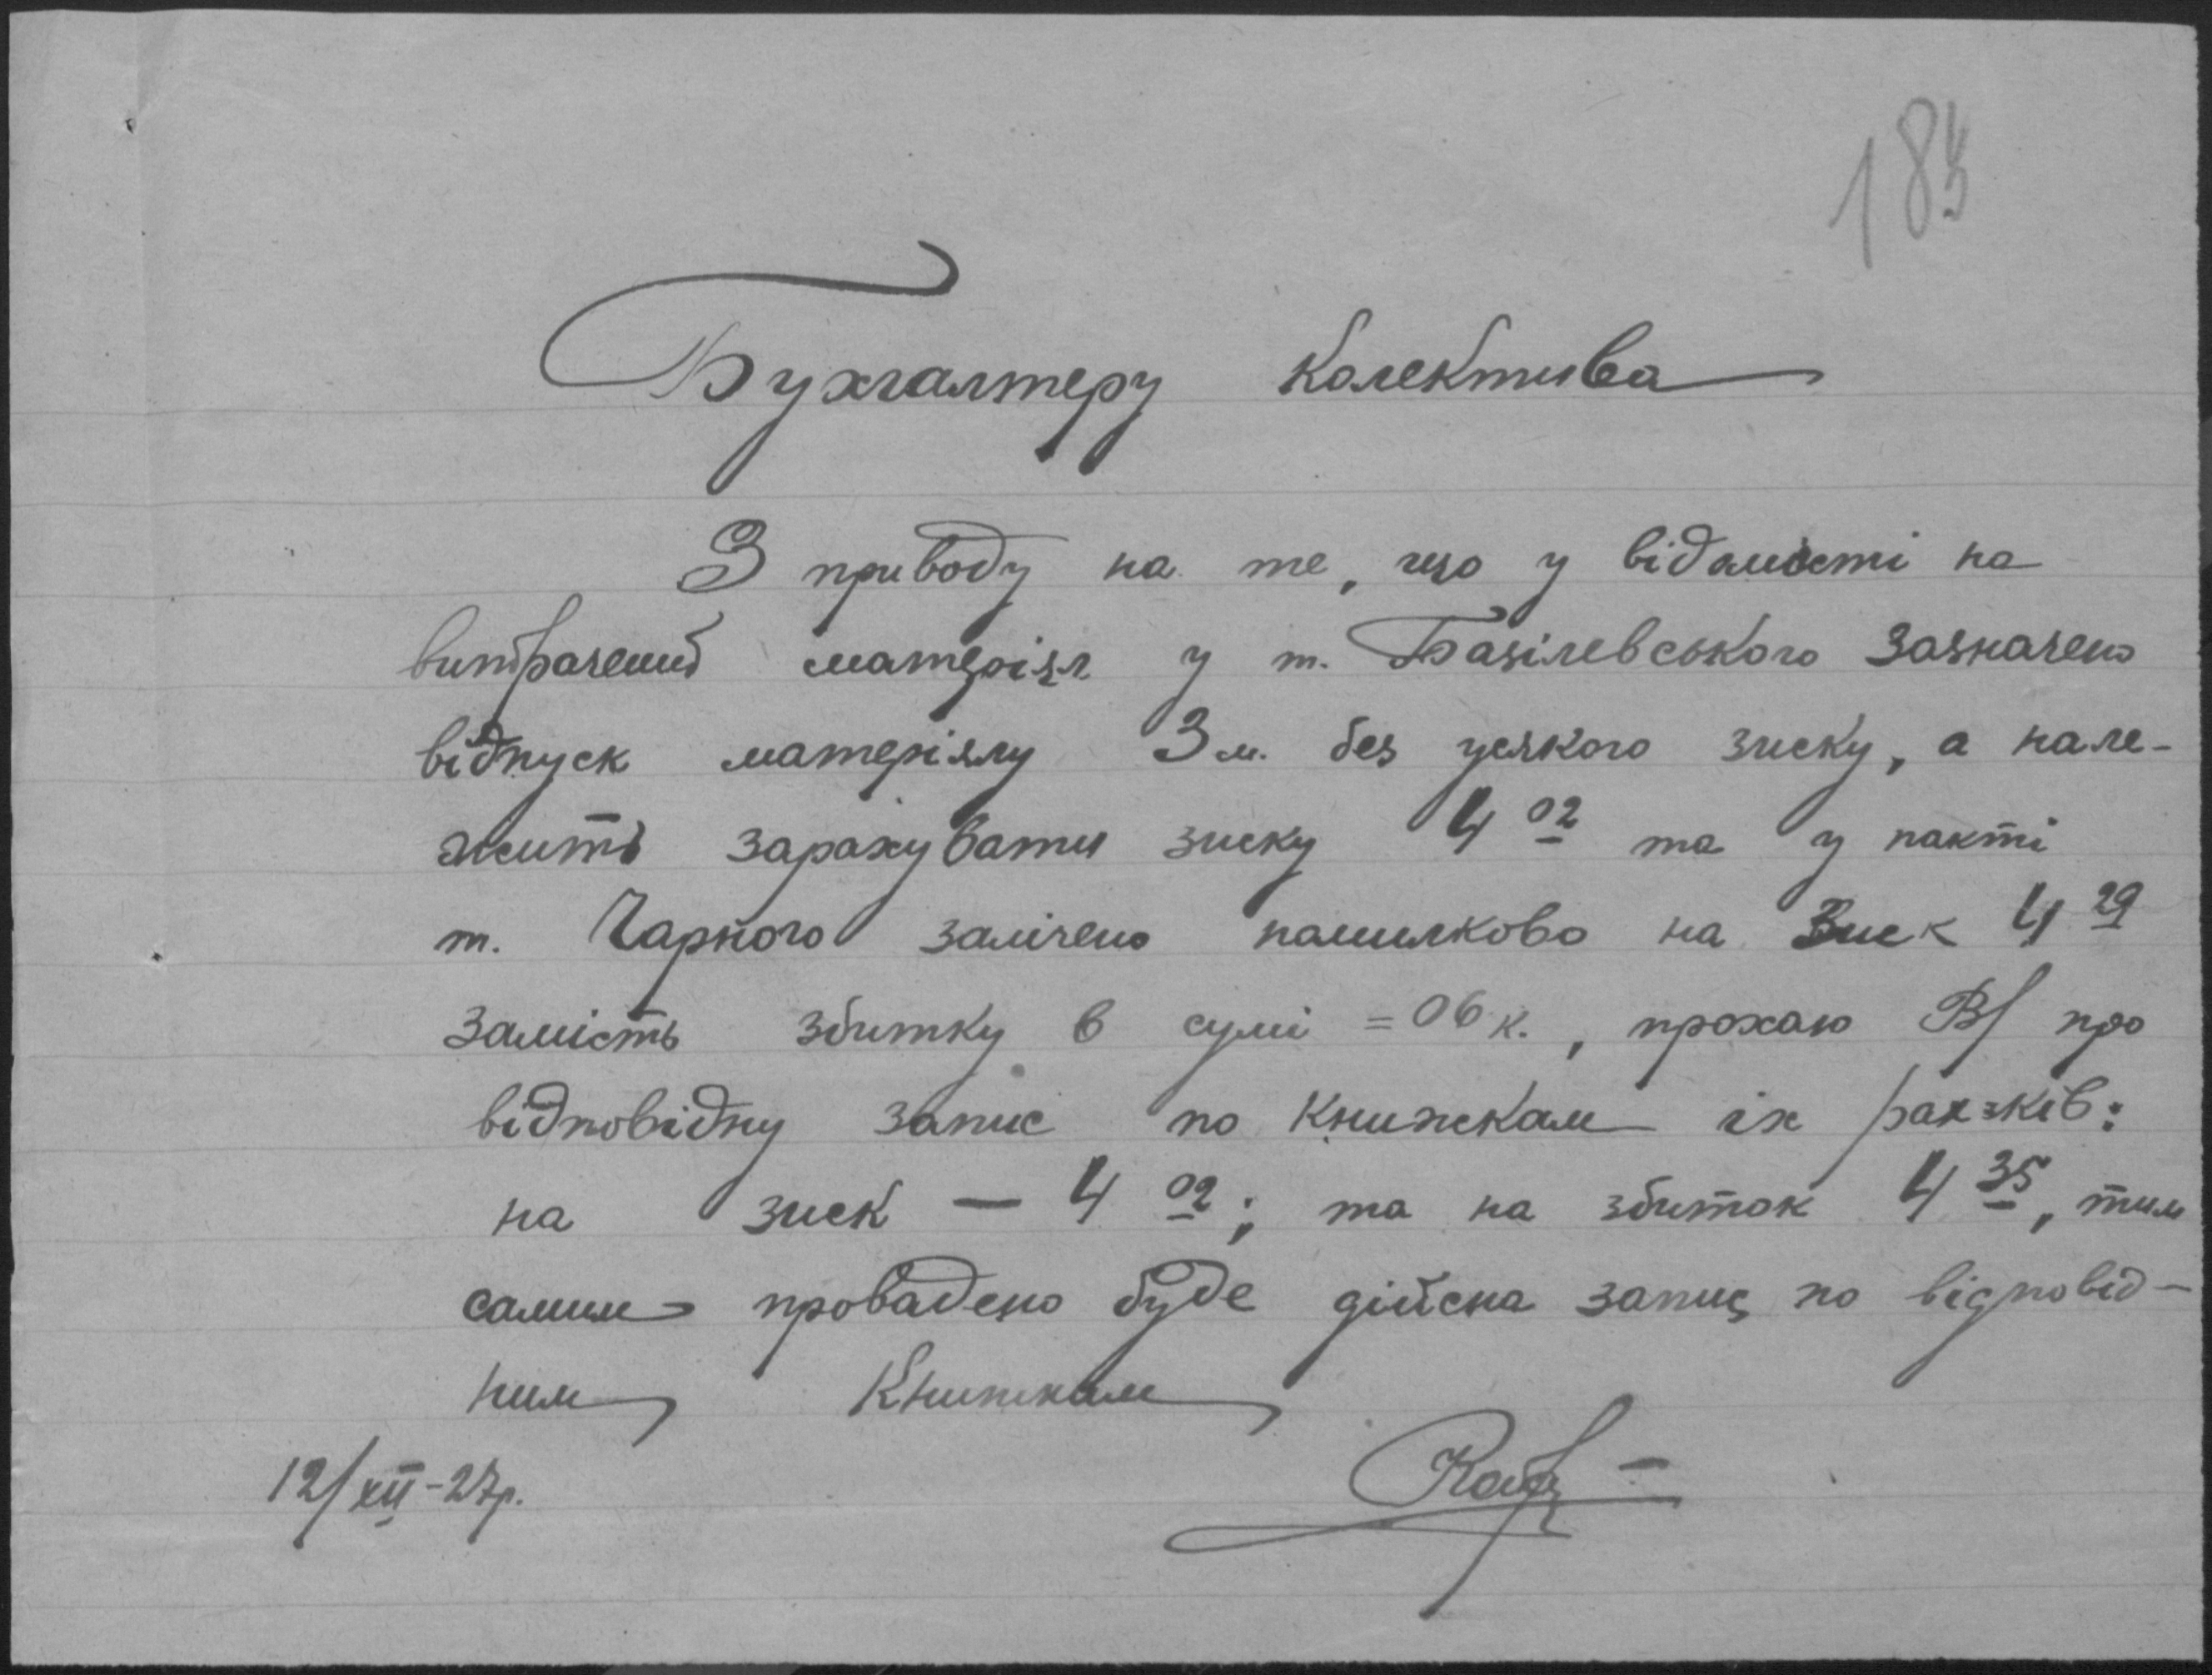 Бухгалтеру Колектива
З приводу на те, що у відамости на
витрачений матеріял у т. Базілевського зазначено
відпуск матеріялу 3 м. без усякого зиску, а нале-
жить зарахувати зиску 4 02 та у пакті
т. Чарного залічено помилково на Зиск 4 29
замість збитку в сумі = 06 к., прохаю В/ про
відповідну запис по книжкам їх рах-ків:
на зиск — 4 02; та на збиток 4 35, тим
самим провадено буде дійсна запис по відповід-
ним Книжкам
12/XII-27р.